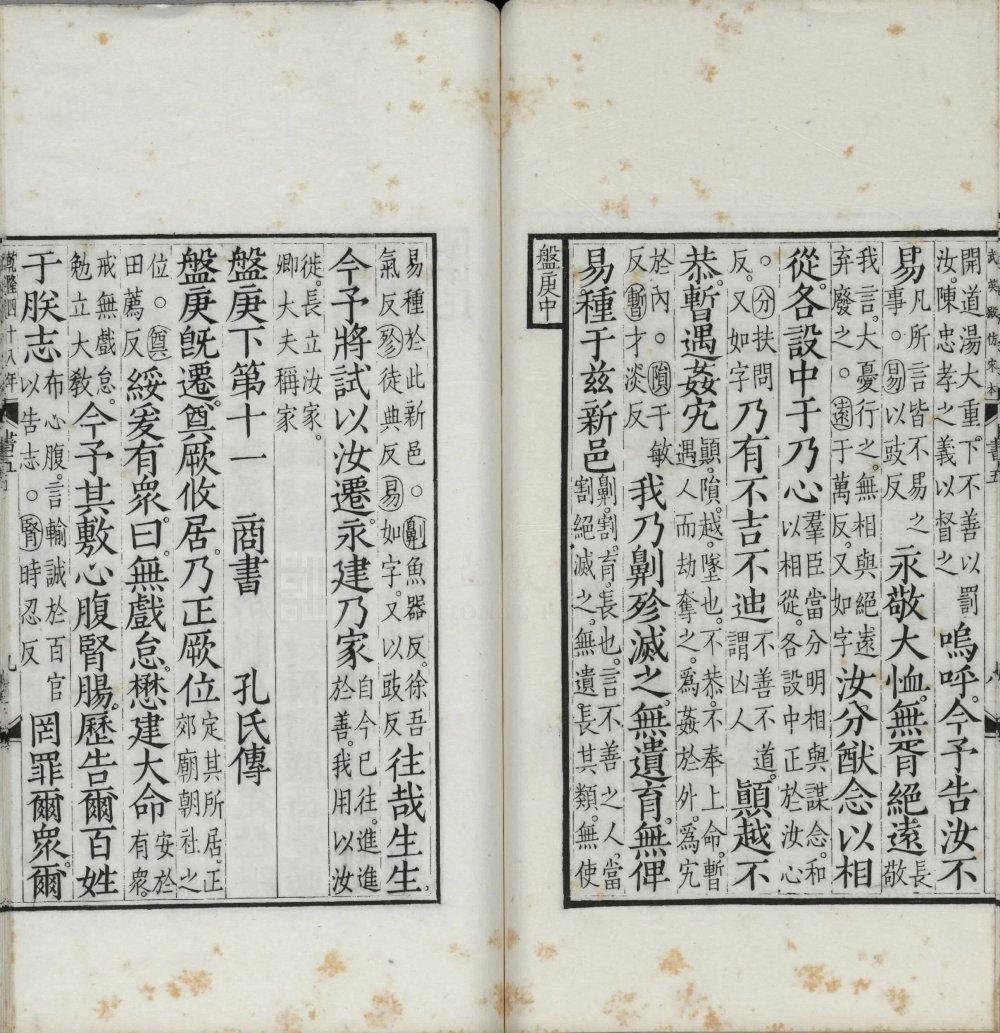 武英殿仿宋本
書五
八
開道湯大重下不善以罰汝。陳忠孝之義以督之 嗚呼。今予告汝不
易凡所言皆不易之事。○易以豉反 永敬大恤。無胥絕遠長敬
我言。大憂行之。無相與絕遠棄廢之。○遠于萬反。又如字 汝分猷念以相
從。各設中于乃心羣臣當分明相與謀念。和以相從。各設中正於汝心
。○分扶問反。又如字 乃有不吉不迪不善不道。謂凶人 顛越不
恭。暫遇姦宄顛。隕。越。墜也。不恭。不奉上命。暫遇人而劫奪之。爲姦於外。爲宄
於內。○隕于敏反。暫才淡反 我乃劓殄滅之。無遺育。無俾
易種于茲新邑劓。割。育。長也。言不善之人。當割絕滅之。無遺長其類。無使
盤庚中
易種於此新邑。○劓魚器反。徐吾氣反。殄徒典反。易如字。又以豉反 往哉生生。
今予將試以汝遷。永建乃家自今已往。進進於善。我用以汝
徙。長立汝家。卿大夫稱家
盤庚下第十一 商書 孔氏傳
盤庚旣遷。奠厥攸居。乃正厥位定其所居。正郊廟朝社之
位。○奠田薦反 綏爰有眾。曰。無戲怠。懋建大命安於有眾。
戒無戲怠。勉立大教 今予其敷心腹腎腸。歷告爾百姓
于朕志布心腹。言輸誠於百官以告志。○腎時忍反 罔罪爾眾。爾
乾隆四十八年
書五
九